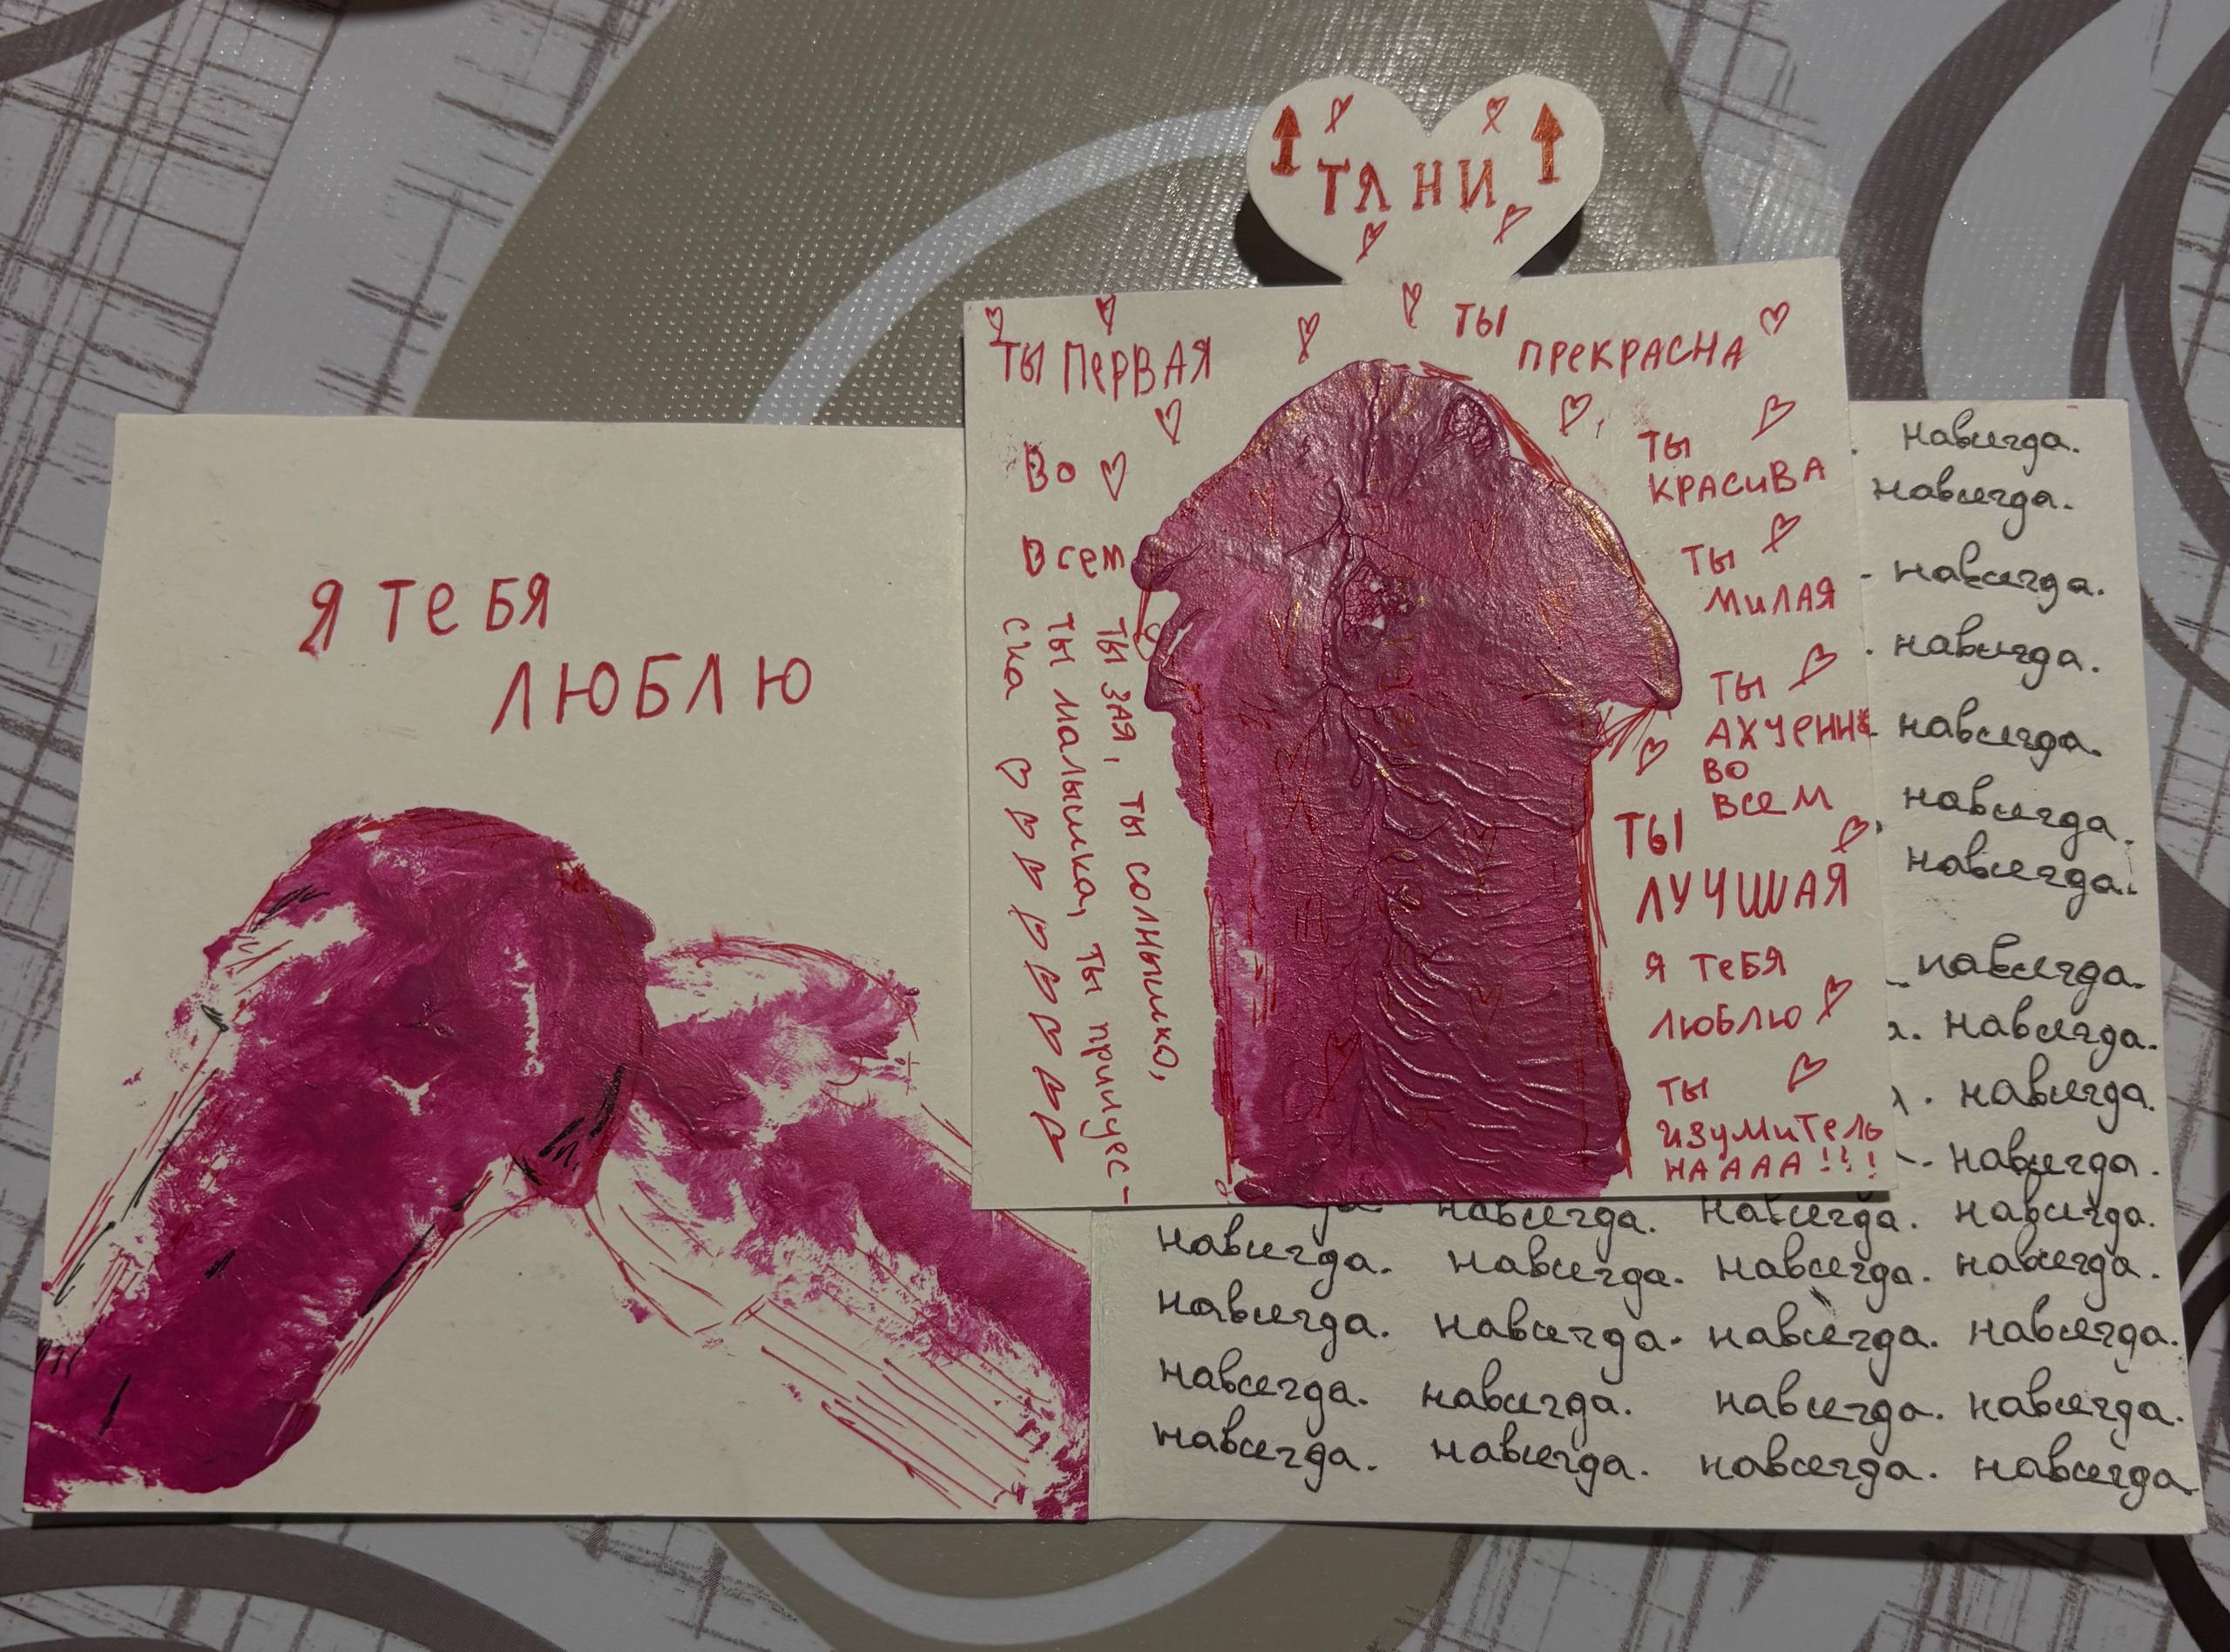 Я ТЕБЯ
ЛЮБЛЮ
ТЯНИ
ТЫ ПЕРВАЯ
ВО
ВСЕМ
ТЫ ЗАЯ, ТЫ СОЛНЫШКО,
ТЫ МАЛЫШКА, ТЫ ПРИНЦЕС-
СКА
ТЫ
ПРЕКРАСНА
ТЫ
КРАСИВА
ТЫ
МИЛАЯ
ТЫ
ВО
ВСЕМ
ТЫ
ЛУЧШАЯ
Я ТЕБЯ
ЛЮБЛЮ
ТЫ
ИЗУМИТЕЛЬ
НАААА!!!
навсегда.
навсегда.
навсегда.
навсегда.
навсегда.
навсегда.
навсегда.
навсегда.
навсегда.
навсегда.
навсегда.
навсегда. навсегда. навсегда.
навсегда. навсегда. навсегда. навсегда.
навсегда. навсегда. навсегда. навсегда.
навсегда. навсегда. навсегда. навсегда.
навсегда. навсегда. навсегда. навсегда